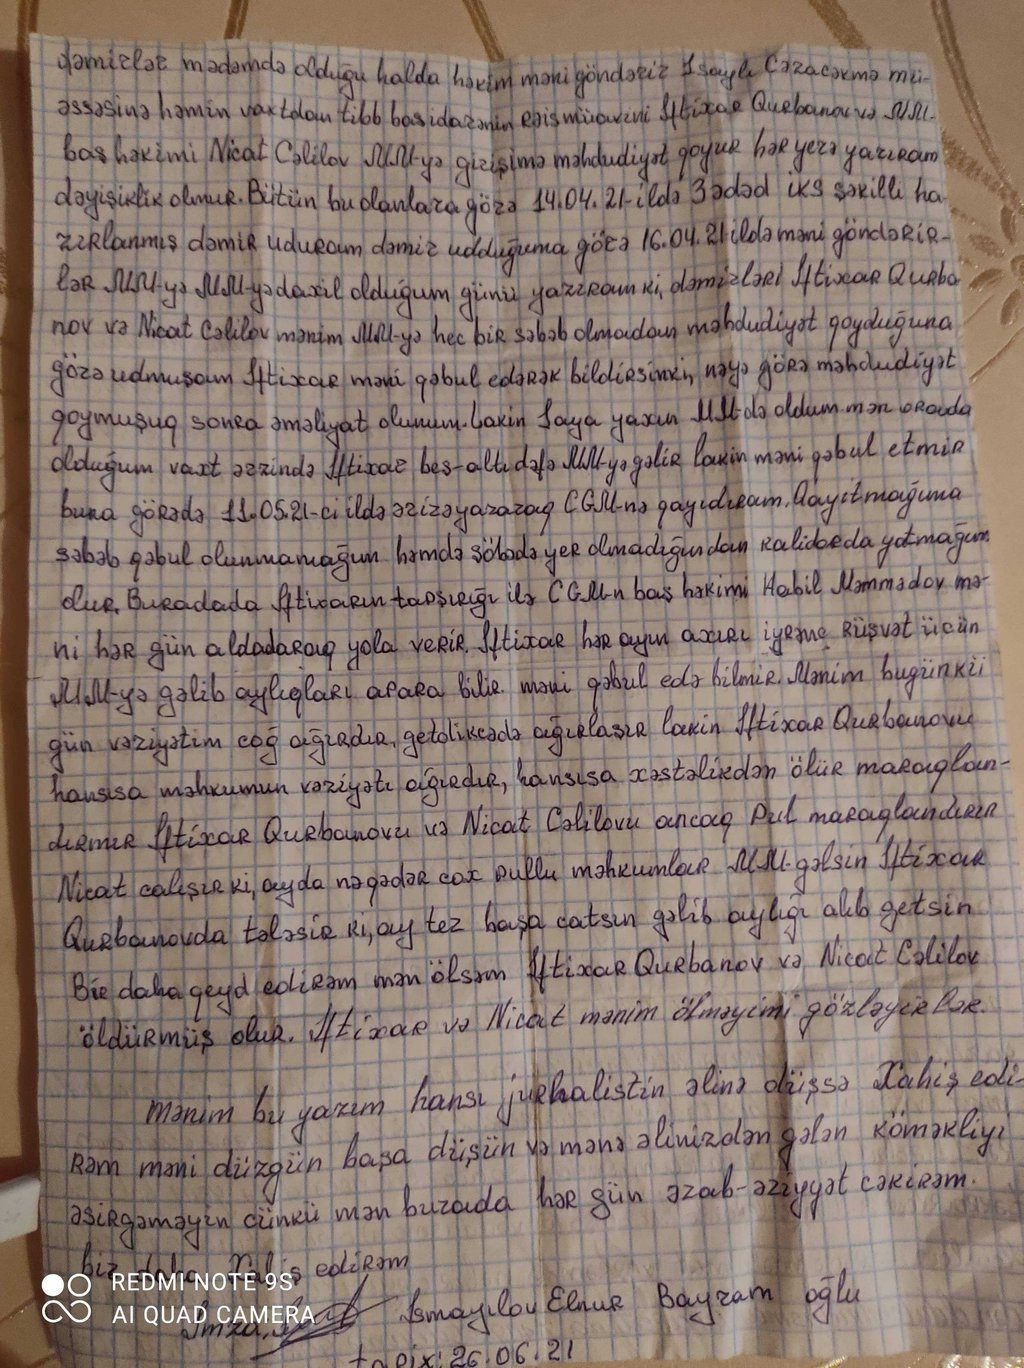 dəmirlər mədəmdə olduğu halda həkim məni göndərir 1 saylı Cəzacəkmə mü-
əssəsinə həmin vaxtdan tibb baş idarənin rəis müavini İftixar Qurbanov və MM-
baş həkimi Nicat Cəlilov MM-yə girişimə məhdudiyət qoyur hər yerə yazıram
dəyişiklik olmur. Bütün bu olanlara görə 14.04.21-ildə 3 ədəd iks şəkilli ha-
zırlanmış dəmir uduram dəmir udduğuma görə 16.04.21 ildə məni göndərir-
lər MM-yə MM-yə daxil olduğum günü yazıram ki, dəmirləri İftixar Qurba
nov və Nicat Cəlilov mənim MM-yə hec bir səbəb olmadan məhdudiyət qoyduğuna
görə udmuşam İftixar məni qəbul edərək bildirsinki, nəyə görə məhdudiyət
qoymuşuq sonra əməliyat olunum. Lakin 1 aya yaxın MM-də oldum mən orada
olduğum vaxt ərzində İftixar beş-altı dəfə MM-yə gəlir lakin məni qəbul etmir
buna görədə 11.05.21-ci ildə ərizə yazaraq CGM-nə qayıdıram. Qayıtmağıma
səbəb qəbul olunmamağım həmdə şöbədə yer olmadığından kalidorda yatmağım
olur. Buradada İftixarın tapşırığı ilə CGM-n baş həkimi Habil Məmmədov mə-
ni hər gün aldadaraq yola verir. İftixar hər ayın axırı iyrənc rüşvət ücün
MM-yə gəlib aylıqları apara bilir məni qəbul edə bilmir. Mənim bugünkü
gün vəziyətim coğ ağırdır, getdikcədə ağırlaşır lakin İftixar Qurbanovu
hansısa məhkumun vəziyəti ağırdır, hansısa xəstəlikdən ölür maraqlan-
dırmır İftixar Qurbanovu və Nicat Cəlilovu ancaq Pul maraqlandırır
Nicat calışır ki, ayda nəqədər cox pullu məhkumlar MM-gəlsin İftixar
Qurbanovda tələsir ki, ay tez başa catsın gəlib aylığı alıb getsin
Bir daha qeyd edirəm mən ölsəm İftixar Qurbanov və Nicat Cəlilov
öldürmüş olur. İftixar və Nicat mənim ölməyimi gözləyirlər.
Mənim bu yazım hansı jurnalistin əlinə düşsə Xahiş edi-
rəm məni düzgün başa düşün və mənə əlinizdən gələn köməkliyi
əsirgəməyin cünkü mən burada hər gün əzab-əziyyət cəkirəm.
bir daha Xahiş edirəm
İmza İsmayılov Elnur Bayram oğlu
tarix: 26.06.21
REDMI NOTE 9S
AI QUAD CAMERA